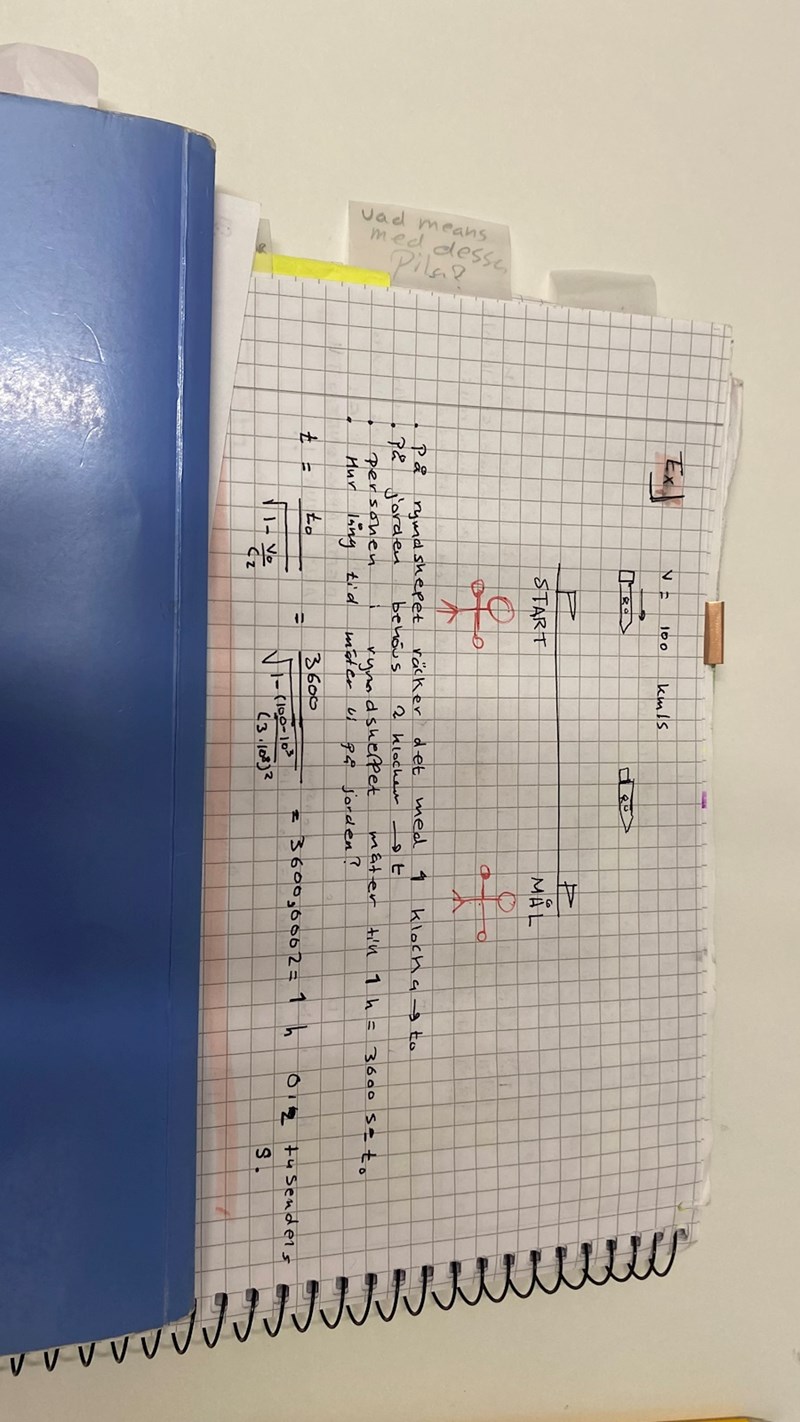 vad means
med dessa
Pila?
Ex
v = 100 km/s
START
MÅL
• På rymdskepet räcker det med 1 klocka → t₀
• På jorden behövs 2 klockor → t
• Personen i rymdskeppet mäter till 1 h = 3600 s = t₀
• Hur lång tid mäter vi på jorden?
t = t₀ / √(1 - v² / c²) = 3600 / √(1 - (100·10³)² / (3·10⁸)²) = 3600,0002 = 1 h 0,2 tusendels
s.